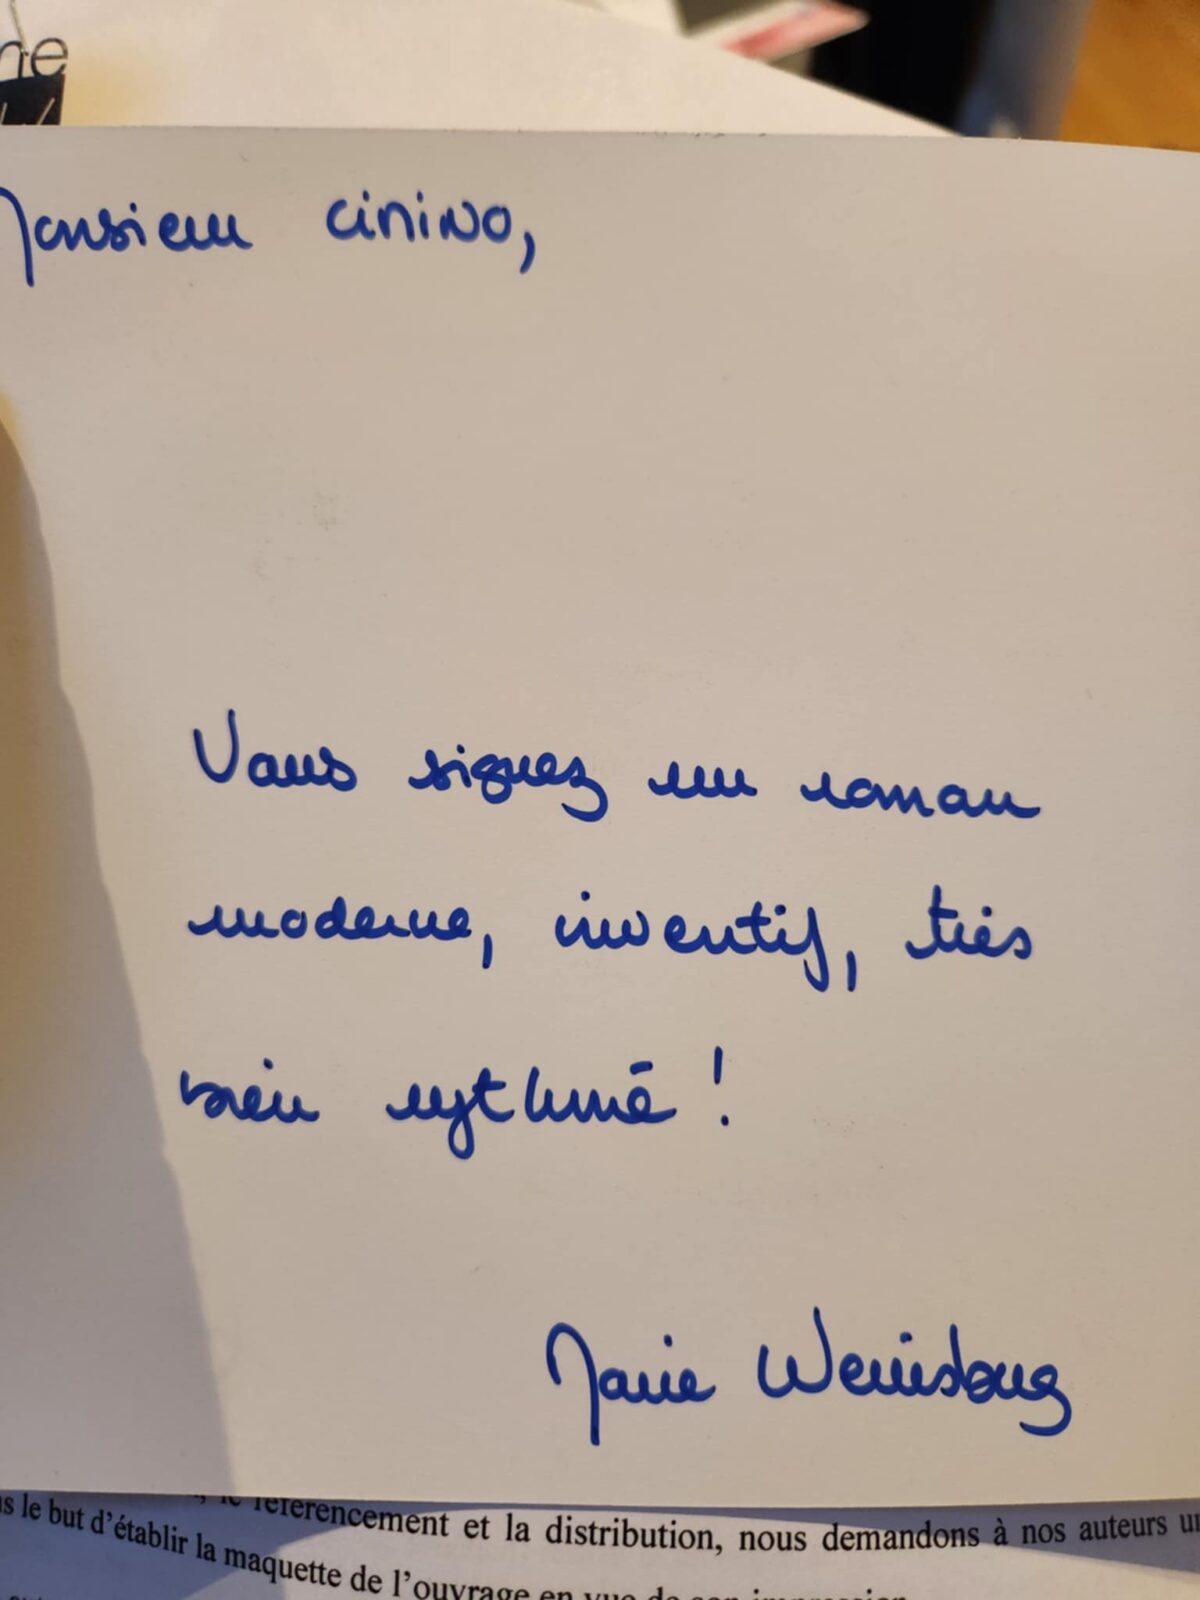 ne
Monsieur CININO,
Vous signez un roman
moderne, inventif, très
bien rythmé !
Marie
le référencement et la distribution, nous demandons à nos auteurs un
s le but d'établir la maquette de l'ouvrage en vue de son impression